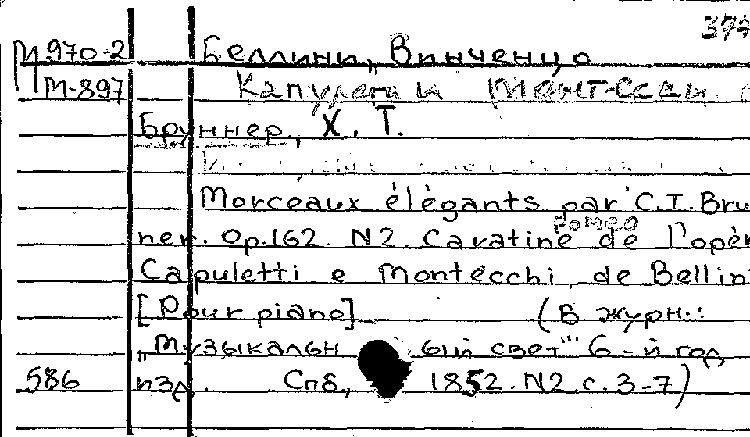 379
М 970-2 Беллини, Винченцо
М-897 Капулети и Монтекки.
Бруннер, Х. Т.
Morceaux élégants par C.T. Bru
ромео
ner. Op.162. N2. Cavatine de l'opér
Capuletti e Montecchi, de Bellin
[Pour piano] (В журн.:
„Музыкальн ый свет" 6-й год
586 изд. Спб, 1852. N2 с. 3-7)